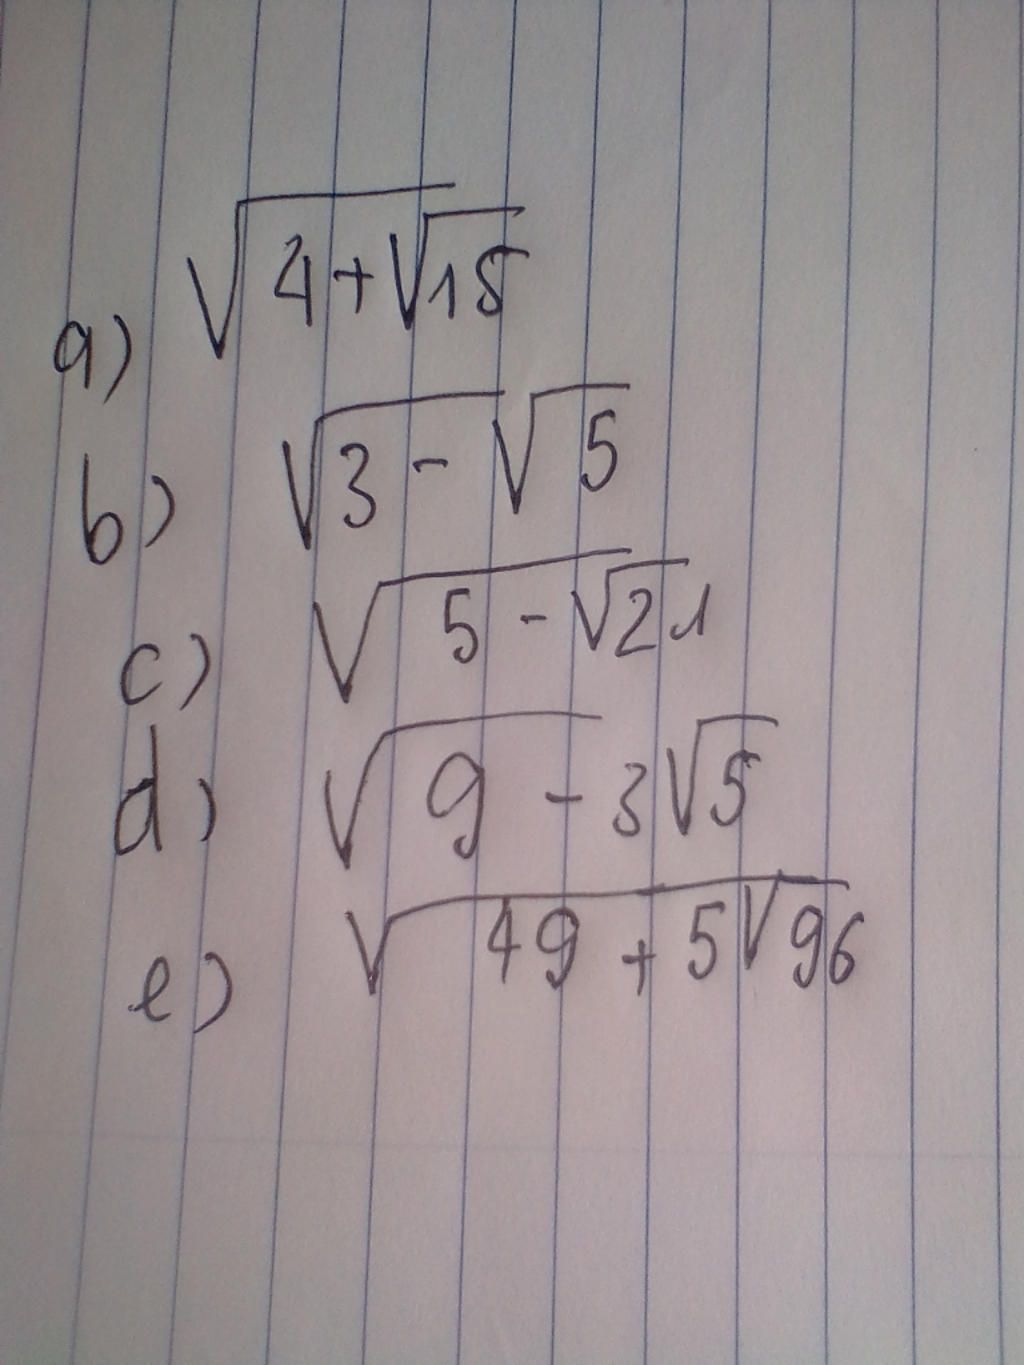 a) √(4+√15)
b) √(3 - √5)
c) √(5 - √21)
d) √(9 - 3√5)
e) √(49 + 5√96)